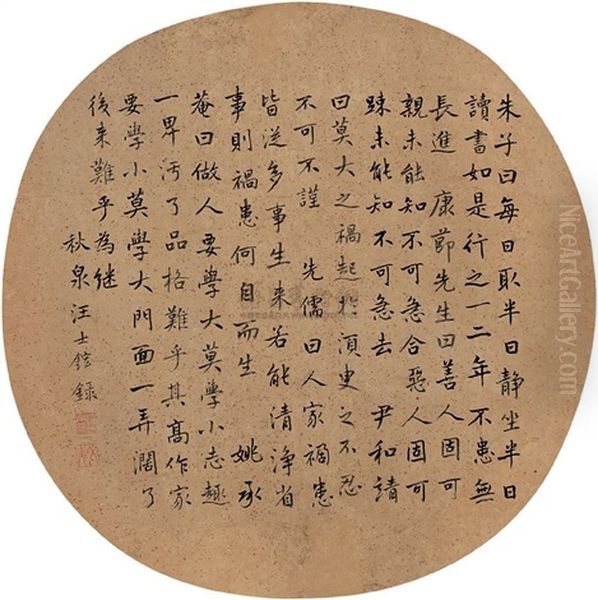 朱子曰每日取半日静坐半日
讀書如是行之一二年不患無
長進康節先生曰善人固可
親未能知不可急合惡人固可
踈未能知不可急去 尹和靖
曰莫大之禍起於須臾之不忍
不可不謹 先儒曰人家禍患
皆從多事生来若能清淨省
事則禍患何自而生 姚承
菴曰做人要學大莫學小志趣
一卑汚了品格難乎其髙作家
要學小莫學大門面一弄濶了
後来難乎為继
秋泉汪士鋐録
NiceArtGallery.com
NiceArtGallery.com